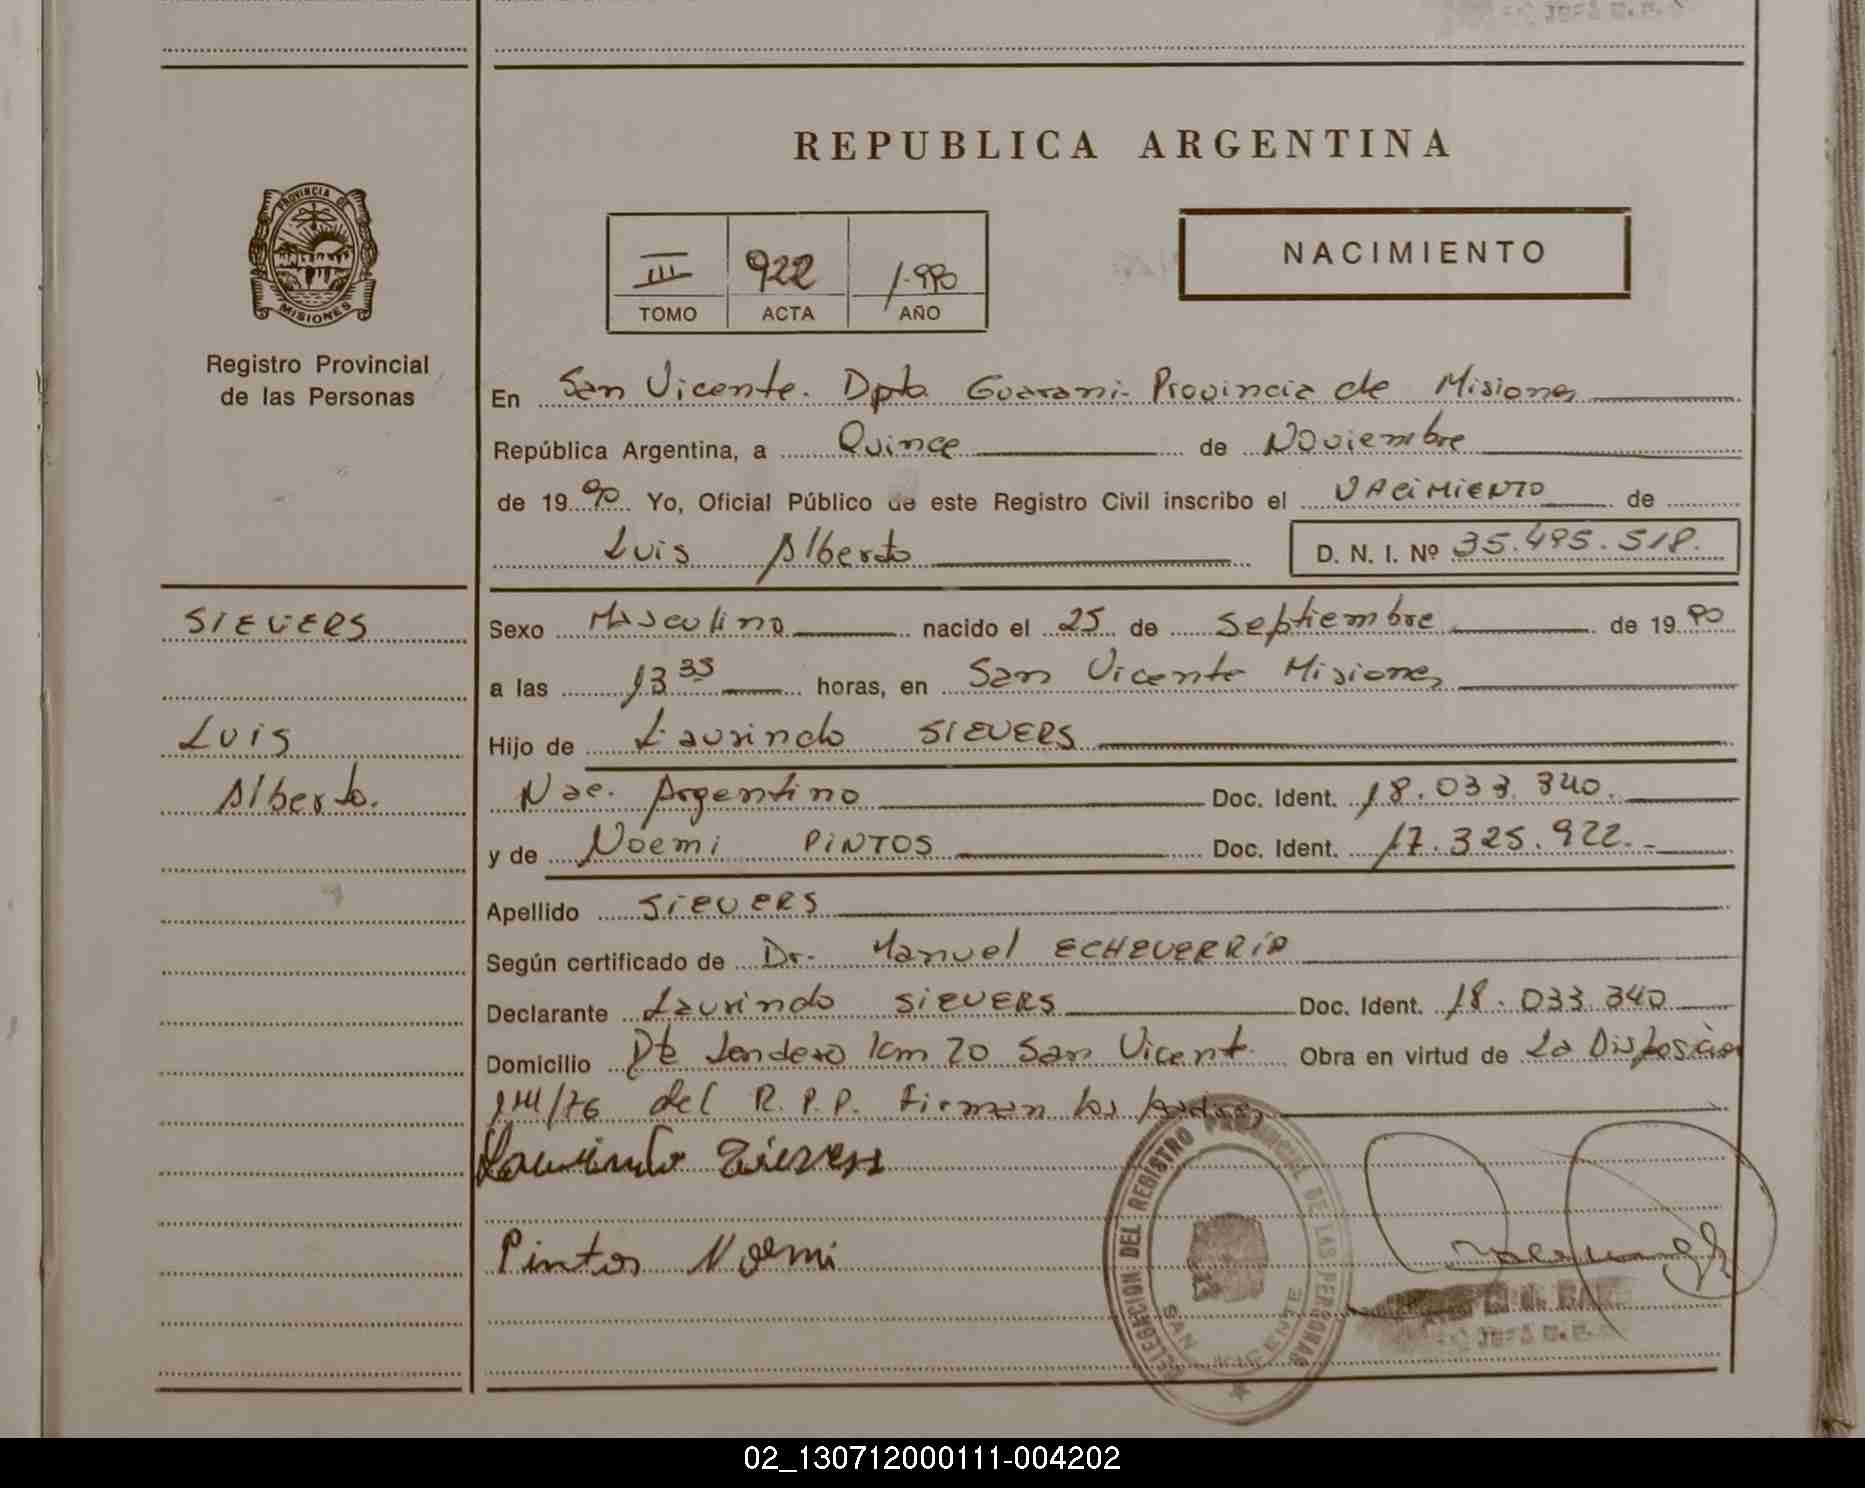 REPUBLICA ARGENTINA
PROVINCIA DE
MISIONES
Registro Provincial
de las Personas
III 922 1.990
TOMO ACTA AÑO
NACIMIENTO
En San Vicente. Dpto. Guarani. Provincia de Misiones
República Argentina, a Quince de Noviembre
de 19 90 Yo, Oficial Público de este Registro Civil inscribo el NACIMIENTO de
Luis Alberto D. N. I. Nº 35.495.518.
SIEVERS
Luis
Alberto.
Sexo Masculino nacido el 25 de Septiembre de 19 90
a las 13 35 horas, en San Vicente Misiones
Hijo de Laurindo SIEVERS
Nac. Argentino Doc. Ident. 18.033.340.
y de Noemi PINTOS Doc. Ident. 17.325.922.
Apellido SIEVERS
Según certificado de Dr. Manuel ECHEVERRIA
Declarante Laurindo SIEVERS Doc. Ident. 18.033.340
Domicilio Km 20 San Vicent. Obra en virtud de La Disposición
del R.P.P. Firman los padres
Laurindo Sievers
Pintos Noemi
DELEGACION DEL REGISTRO PROVINCIAL DE LAS PERSONAS
SAN VICENTE
02_130712000111-004202